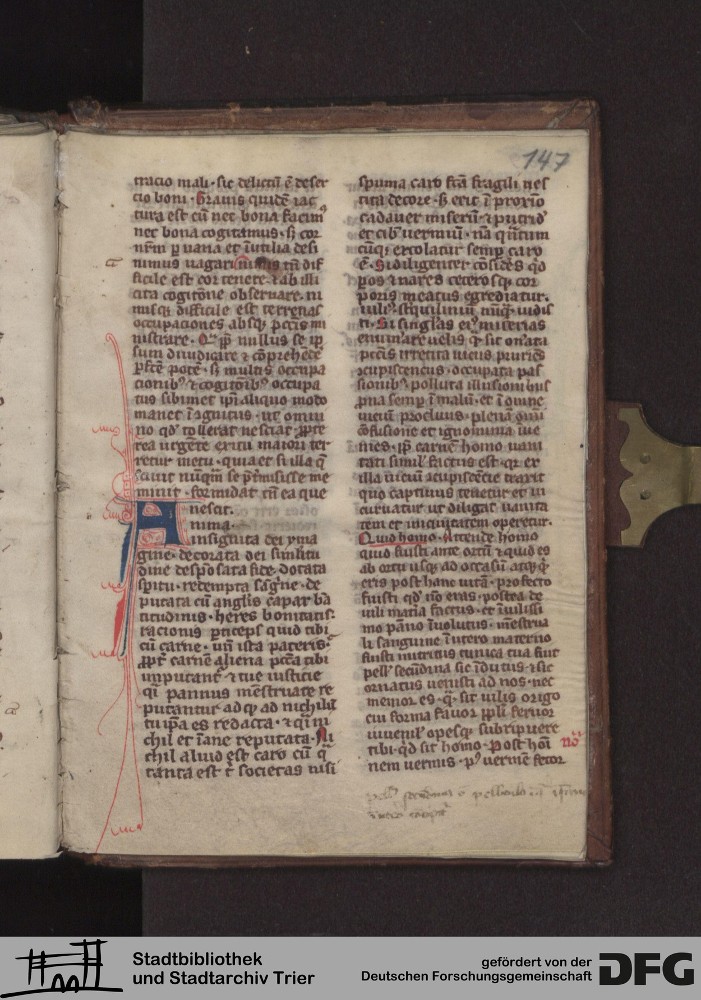 147
tracio mali · sic delictũ ẽ deser
cio boni · Grauis quidẽ iac
tura est cũ nec bona facimꝰ
nec bona cogitamus · sꝫ cor
nr̃m ꝑ uana et ĩutilia desi
nimus uagari · nimis tñ dif
ficile est cor tenere · ⁊ ab illi
cita cogitõne obseruare · ni
misqꝫ difficile est terrenas
occupaciones absqꝫ pctĩs mi
nistrare · nullus se ip
sum diiudicare ⁊ cõprehẽdẽ
ꝑfcẽ potẽ · sꝫ multis occupa
cionibꝰ ⁊ cogitõibꝰ occupa
tus sibimet ip̃i aliquo modo
manet ĩcognitus · ut omni
no qd̾ tollerat nesciat · ꝓpte
rea urgẽte exitu maiori ter
retur metu · quia et si illa q̃
sciuit nũqm̃ se p̃t̾misisse me
minit · formidat tñ ea que
nescit.
Anima
insignita dei yma
gine · decorata dei similitu
dine desponsata fide · dotata
sp̃itu · redempta sãg̾ne · de
putata cũ anglis capax bã
titudinis · heres bonitatis ·
racionis ꝑticeps quid tibi
cũ carne · un̄ ista pateris ·
ꝓpt̾ carnẽ aliena pctã tibi
ĩmputant̾ ⁊ tue iusticie
q̃i pannus mẽstruate re
putantur ad qꝫ ad nichilũ
tu ip̃a es redacta · ⁊ q̃i ni
chil et ĩane reputata · Ni
chil aliud est caro cũ q̃
tanta est t̾ societas nisi
spuma caro fc̃a fragili ues
tita decore · sꝫ erit ĩ proxĩo
cadauer miserũ ⁊ putridꝰ
et cibꝰ uermiũ · nã q̃ntum
cũqꝫ excolatur semꝑ caro
ẽ · Si diligenter cõsideres qd̾
ꝑ os ⁊ nares ceterosqꝫ cor
poris meatus egrediatur.
uiliꝰ sterquiliniũ nũqꝫ uidis
ti · Si singlas eiꝰ miserias
enumerare uelis q̃ sit on̾ata
pctĩs irretita uiciis pruriẽs
ꝯcupiscenciis · occupata pas
sionibꝰ polluta illusionibus
ꝓna semꝑ ĩ malũ · et ĩ omne
uiciũ procliuis · plenã om̃i
ꝯfusione et ignominia iue
nies · ꝑ carnẽ homo uani
tati similꝰ factus est · q̃ ex
illa uiciũ ꝯcupiscẽcie traxit
quo captiuus tenetur et in
curuatur ut diligat uanita
tem et iniquitatem operetur.
Quid homo · Attende homo
quid fuisti ante ortũ ⁊ quid es
ab ortu usqꝫ ad occasũ atqꝫ q̾
eris post hanc uitã · profecto
fuisti qd̾ nõ eras · postea de
uili mat̾ia factus · et ĩ uilissi
mo pãno ĩuolutus · mẽstrua
li sanguine ĩ utero materno
fuisti nutritus tunica tua fuit
pellꝭ secũdina sic ĩdutus ⁊ sic
ornatus uenisti ad nos · nec
memor es · q̃ · sit uilis origo
cui forma fauor ppl̾i feruor
iuuenilꝭ opesqꝫ subripuere
tibi · qd̾ sit homo · Post hoĩ
nem uermis · pꝰ uermẽ fetor
nõ
Stadtbibliothek
und Stadtarchiv Trier
gefördert von der
Deutschen Forschungsgemeinschaft
DFG